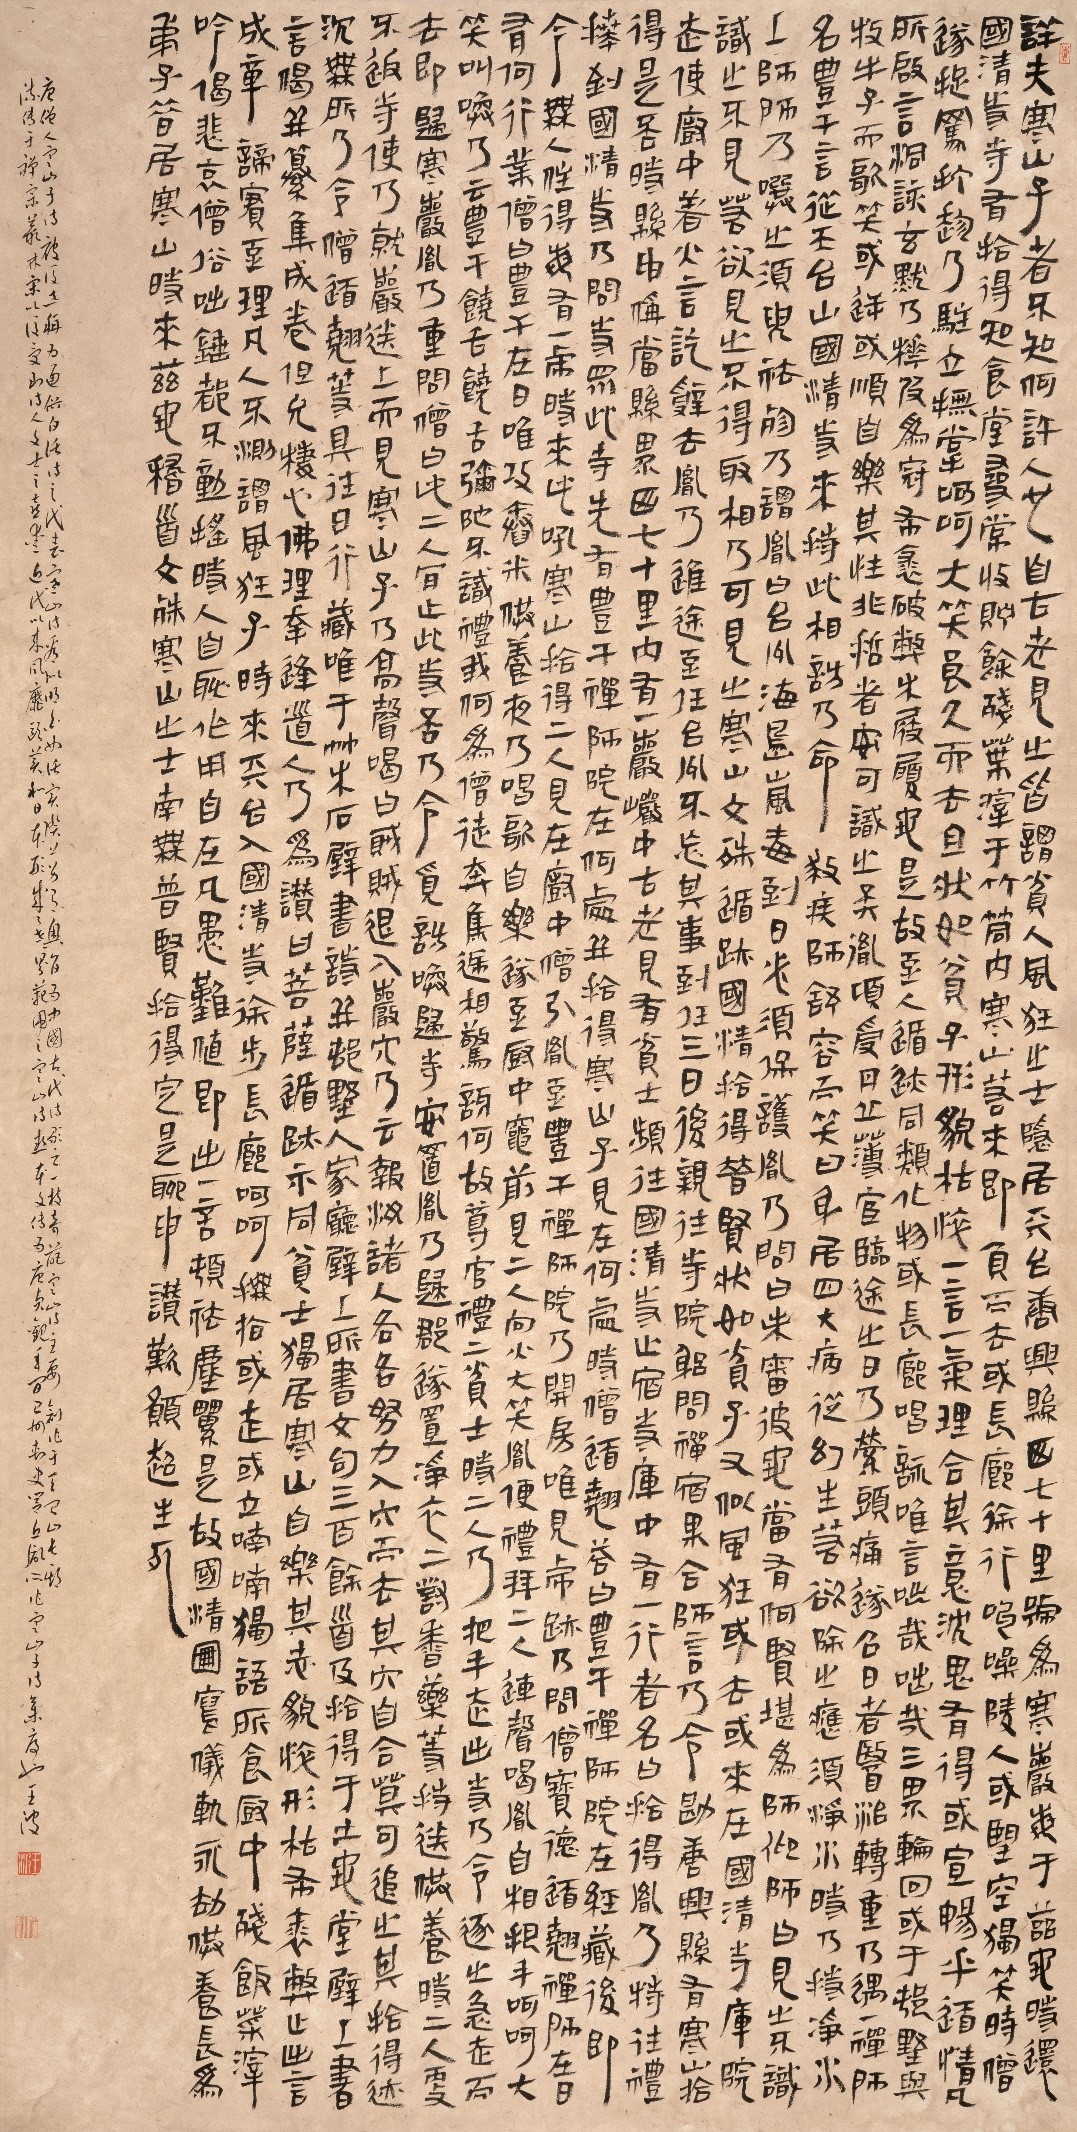 詳夫寒山子者不知何許人也自古老見之皆謂貧人風狂之士隱居天台唐興縣西七十里號為寒巖每于茲地時還
國清寺寺有拾得知食堂尋常收貯餘殘菜滓于竹筒內寒山若來即負而去或長廊徐行叫噪陵人或望空獨笑時僧
遂捉罵打趁乃駐立撫掌呵呵大笑良久而去且狀如貧子形貌枯悴一言一氣理合其意沈思有得或宣暢乎道情凡
所啟言洞該玄默乃樺皮為冠布裘破弊木屐履地是故至人遁跡同類化物或長廊唱詠唯言咄哉咄哉三界輪回或于村墅與
牧牛子而歌笑或逆或順自樂其性非哲者安可識之矣胤頃受丹丘薄宦臨途之日乃縈頭痛遂召日者醫治轉重乃遇一禪師
名豐干言從天台山國清寺來特此相訪乃命救疾師舒容而笑曰身居四大病從幻生若欲除之應須淨水時乃持淨水
上師師乃噀之須臾祛殄乃謂胤曰台州海島嵐毒到日必須保護胤乃問曰未審彼地當有何賢堪為師仰師曰見之不識
識之不見若欲見之不得取相乃可見之寒山文殊遁跡國清拾得普賢狀如貧子又似風狂或去或來在國清寺庫院
走使廚中着火言訖辭去胤乃進途至任台州不忘其事到任三日後親往寺院躬問禪宿果合師言乃令勘唐興縣有寒山拾
得是否時縣申稱當縣界西七十里內有一巖巖中古老見有貧士頻往國清寺止宿寺庫中有一行者名曰拾得胤乃特往禮
拜到國清寺乃問寺眾此寺先有豐干禪師院在何處并拾得寒山子見在何處時僧道翹答曰豐干禪師院在經藏後即
今無人住得每有一虎時來此吼寒山拾得二人見在廚中僧引胤至豐干禪師院乃開房唯見虎跡乃問僧寶德道翹禪師在日
有何行業僧曰豐干在日唯攻舂米供養夜乃唱歌自樂遂至廚中竈前見二人向火大笑胤便禮拜二人連聲喝胤自相把手呵呵大
笑叫喚乃云豐干饒舌饒舌彌陀不識禮我何為僧徒奔集遞相驚訝何故尊官禮二貧士時二人乃把手走出寺乃令逐之急走而
去即歸寒巖胤乃重問僧曰此二人肯止此寺否乃令覓訪喚歸寺安置胤乃歸郡遂置淨衣二對香藥等持送供養時二人更
不返寺使乃就巖送上而見寒山子乃高聲喝曰賊賊退入巖穴乃云報汝諸人各各努力入穴而去其穴自合莫可追之其拾得迹
沉無所乃令僧道翹等具往日行藏唯于竹木石壁書詩并村墅人家廳壁上所書文句三百餘首及拾得于土地堂壁上書
言偈并纂集成卷但允棲心佛理幸逢道人乃為讚曰菩薩遁跡示同貧士獨居寒山自樂其志貌悴形枯布裘弊止出言
成章諦實至理凡人不測謂風狂子時來天台入國清寺徐步長廊呵呵撫指或走或立喃喃獨語所食廚中殘飯菜滓
吟偈悲哀僧俗咄錘都不動搖時人自恥作用自在凡愚難值即出一言頓祛塵累是故國清圖寫儀軌永劫供養長為
弟子昔居寒山時來茲地稽首文殊寒山之士南無普賢拾得定是聊申讚歎願超生死
唐僧人寒山子詩被後世稱為通俗白話詩之代表
流傳于禪宗叢林